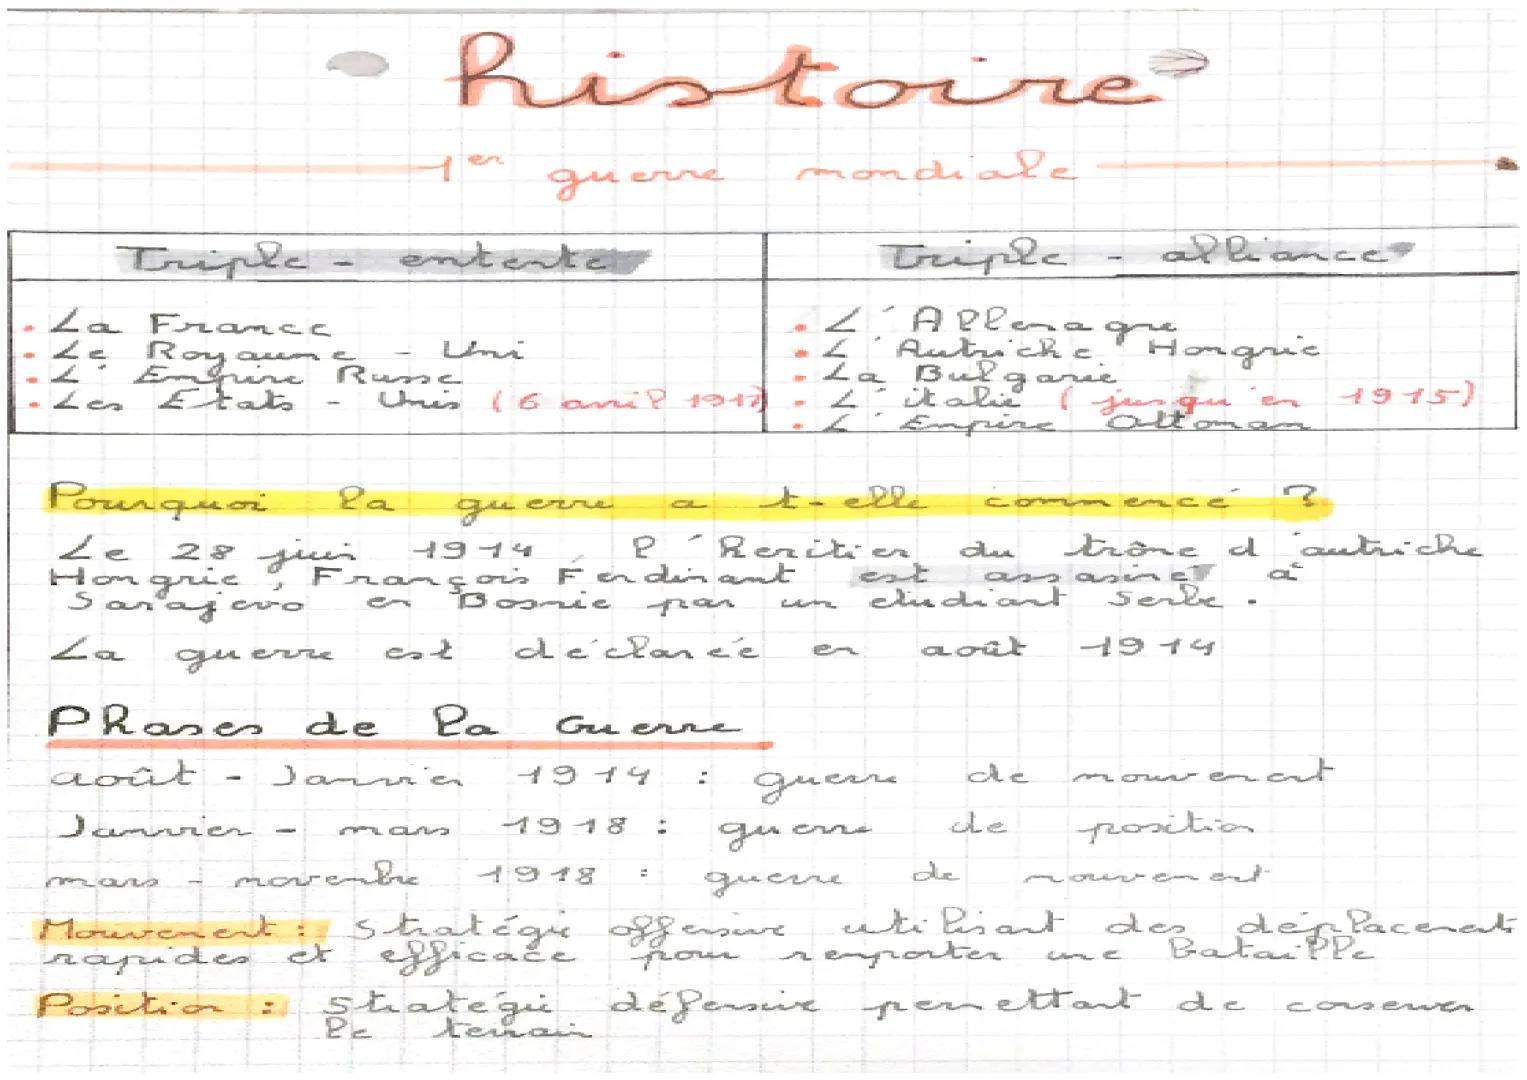 histoire
1er guerre mondiale
Triple - entente
Triple - alliance
• La France
• Le Royaume - Uni
• L'Empire Russe
• Les Etats - Unis (6 avril 1917)
• L'Allemagne
• L'Autriche Hongrie
• La Bulgarie
• L'italie (jusqu'en 1915)
• L'Empire Ottoman
Pourquoi la guerre a t-elle commencé ?
Le 28 juin 1914, l'héritier du trône d'autriche
Hongrie, François Ferdinant est assasiné à
Sarajevo en Bosnie par un étudiant Serbe.
La guerre est déclarée en août 1914
Phases de la Guerre
août - Janvier 1914 : guerre de mouvement
Janvier - mars 1918 : guerre de position
mars - novembre 1918 : guerre de mouvement
Mouvement : Stratégie offensive utilisant des déplacement
rapides et efficace pour remporter une bataille
Position : Stratégie défensive permettant de conserver
le terrain